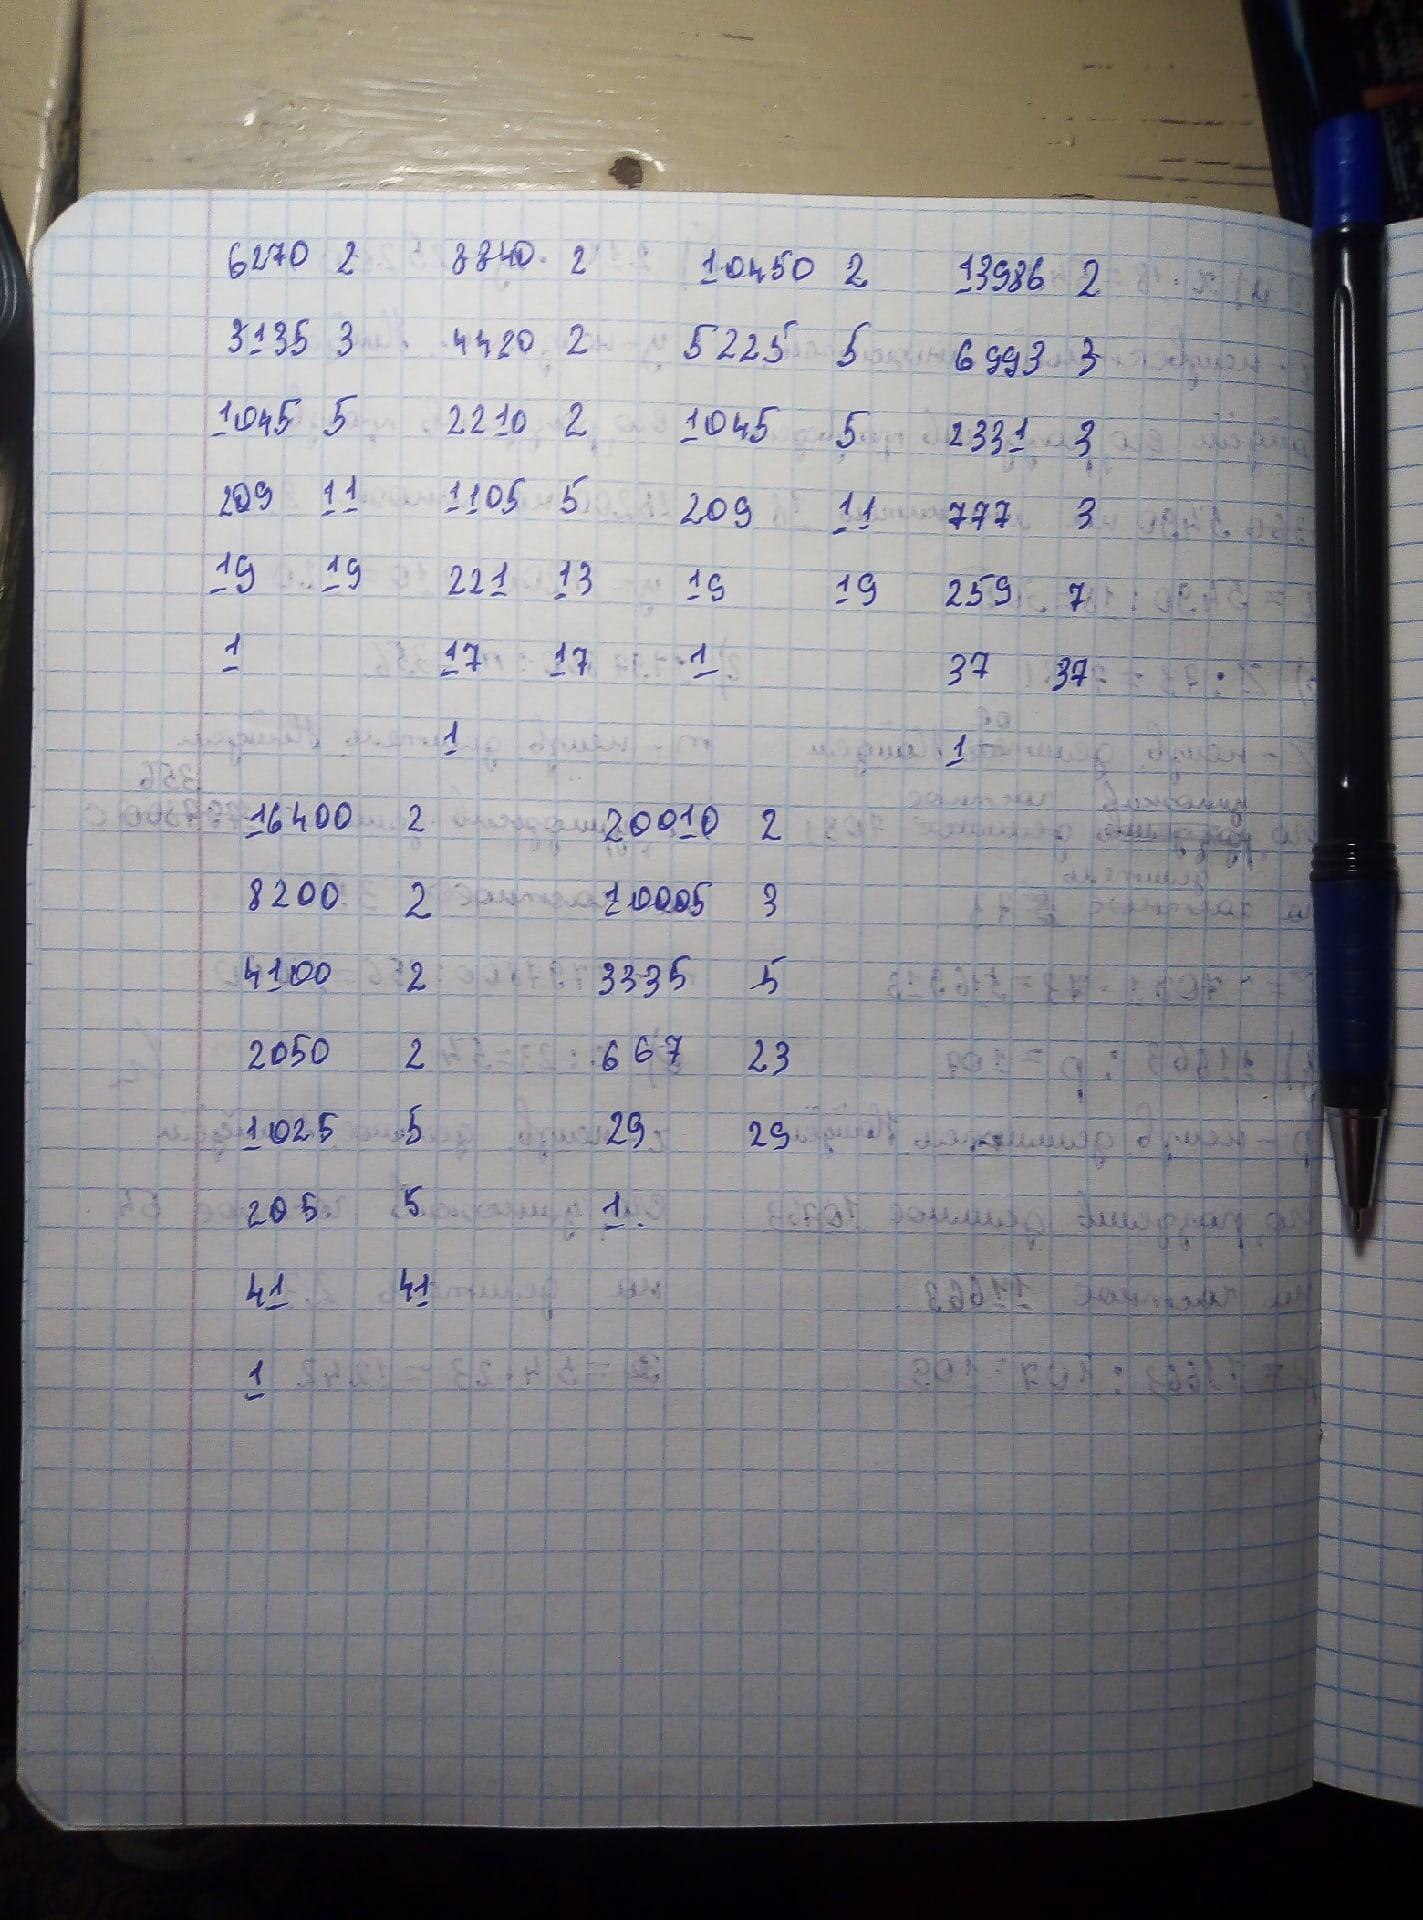 6270 2 8840 2 10450 2 13986 2
3135 3 4420 2 5225 5 6993 3
1045 5 2210 2 1045 5 2331 3
209 11 1105 5 209 11 777 3
19 19 221 13 19 19 259 7
1 17 17 1 37 37
1 1
16400 2 20010 2
8200 2 10005 3
4100 2 3335 5
2050 2 667 23
1025 5 29 29
205 5 1
41 41
1